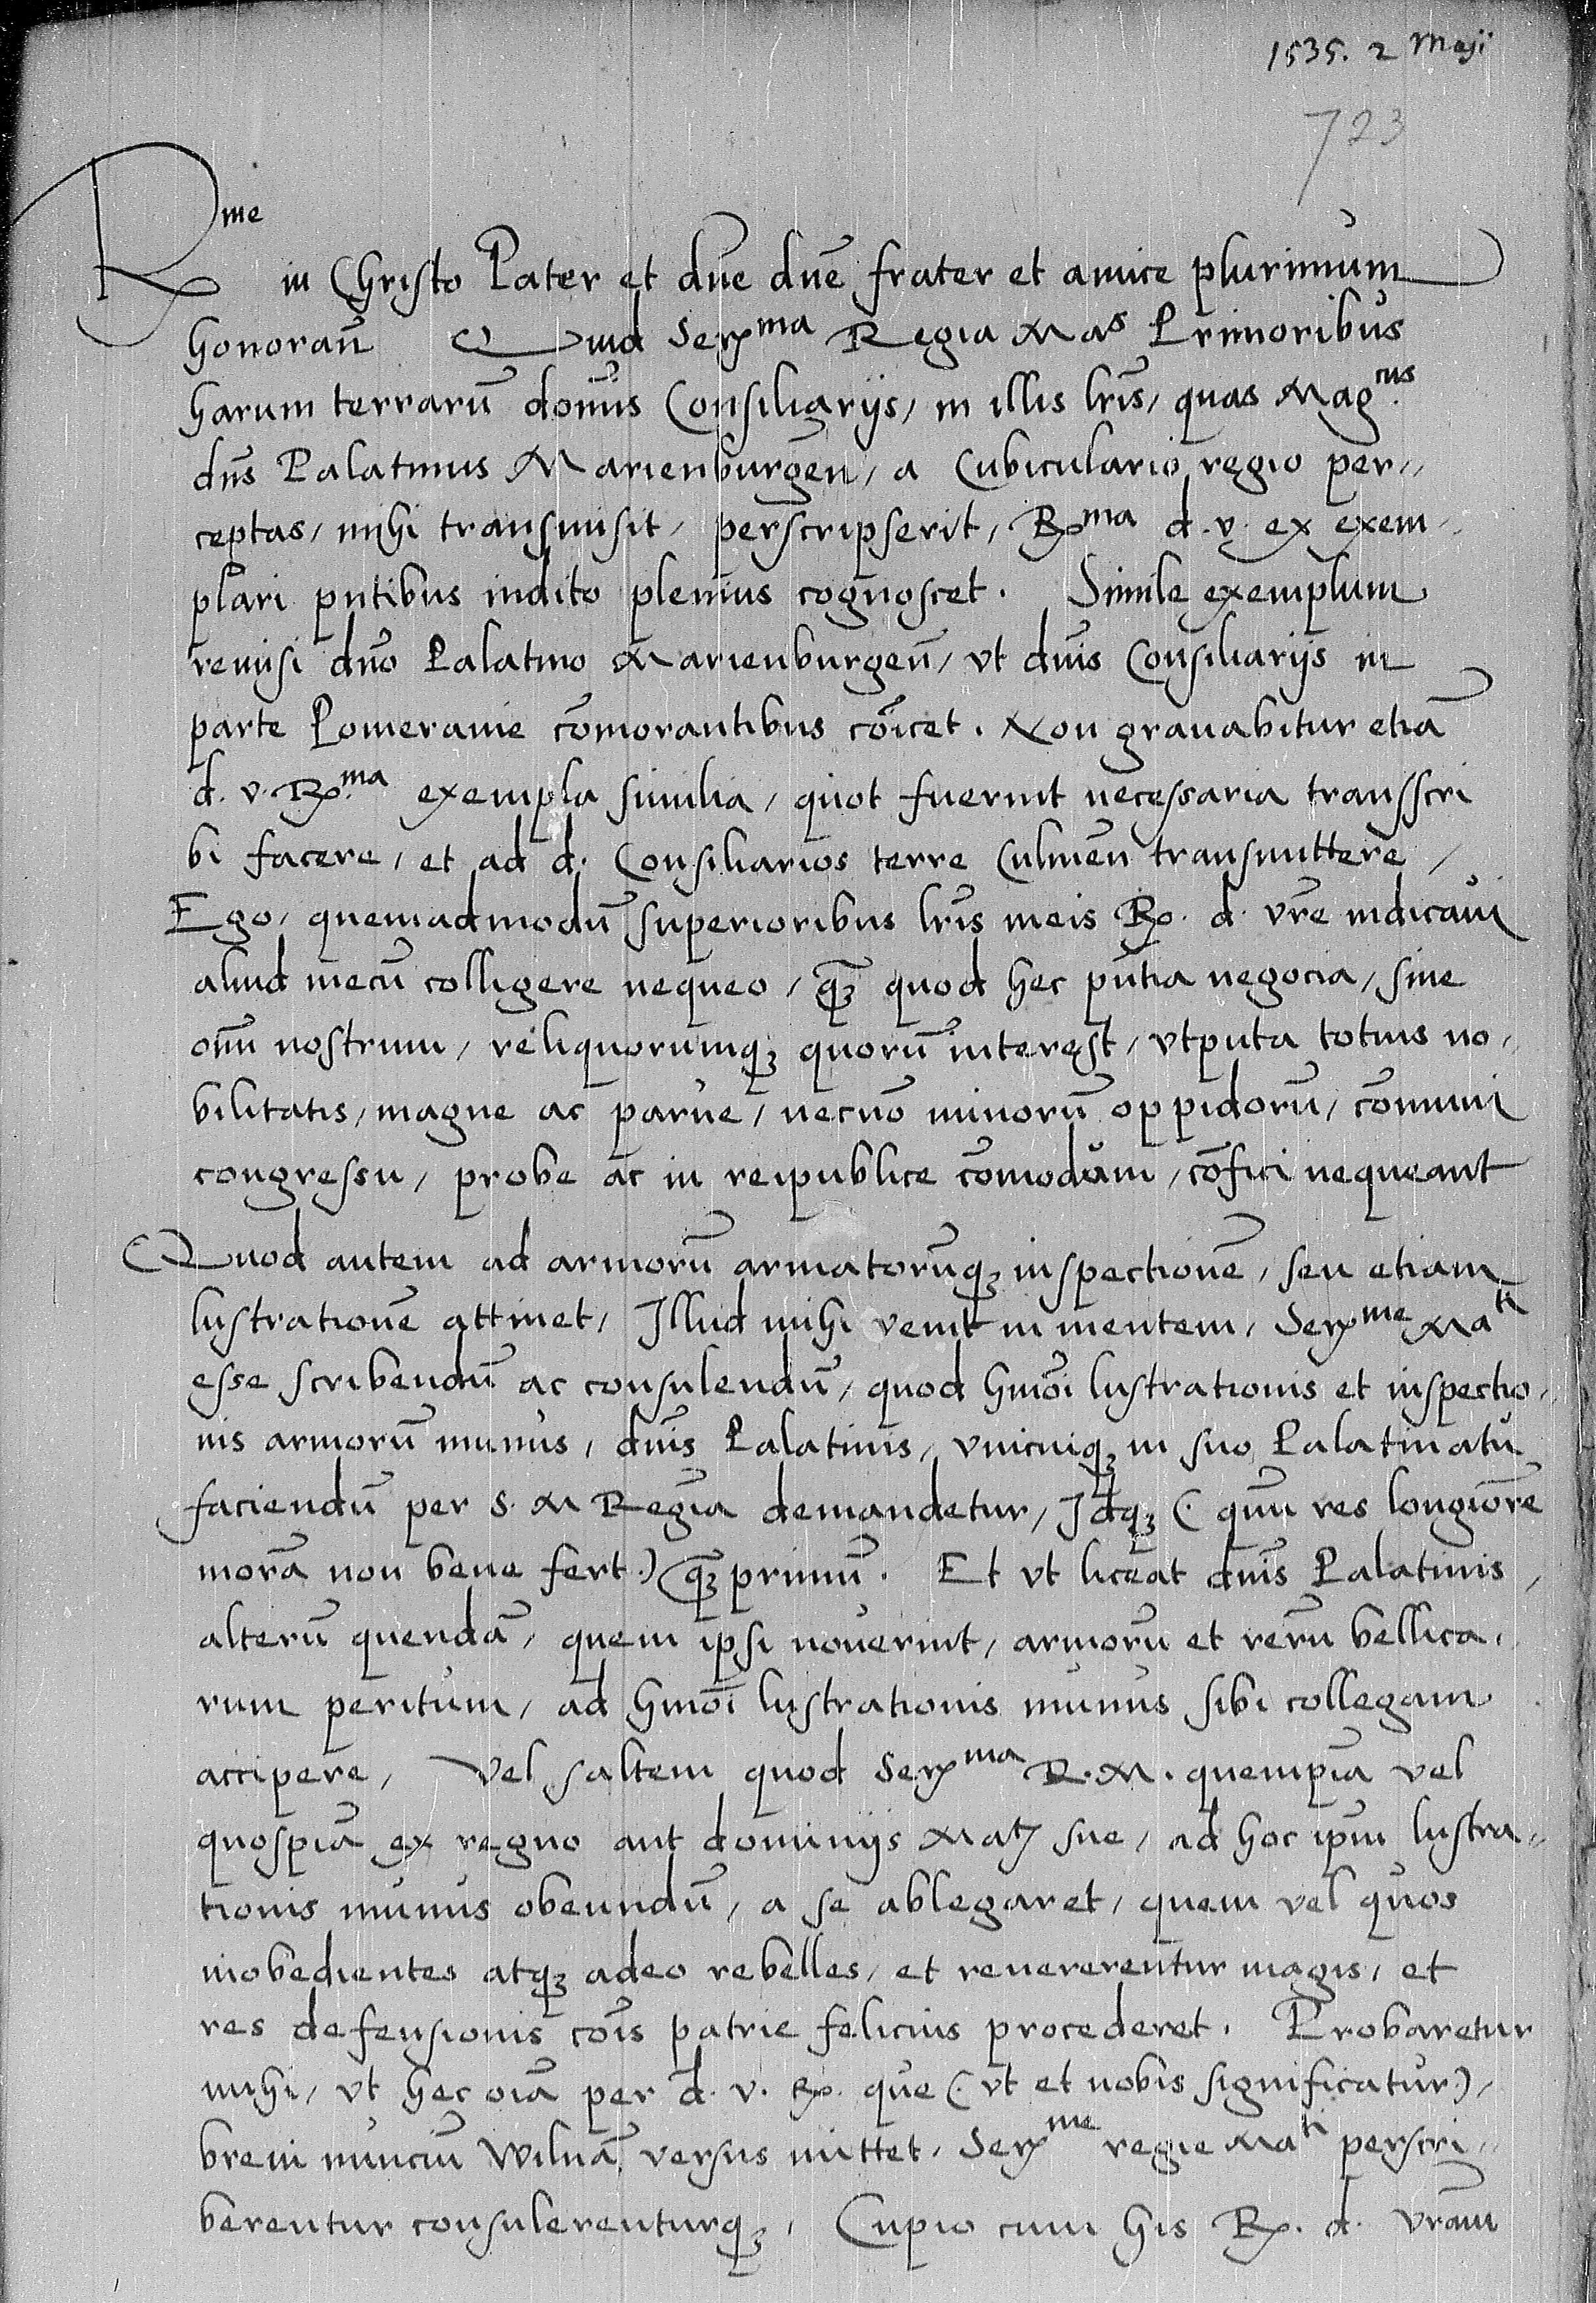 1535. 2 Maji
723
Rme
in Christo Pater et dne dne frater et amice plurimum
honoran̄ Quid Serma Regia Mas Primoribus
harum terrarū domis Consiliarijs, in illis lris, quas Mag.cus
dns Palatinus Marienburgen̄, a Cubiculario regio per„
ceptas, mihi transmisit, perscripserit, Rma d. v. ex exem„
plari pntibus indito plenius cognoscet. Simile exemplum
remisi dno Palatino Marienburgen̄, vt dnis Consiliarijs in
parte Pomeranie cōmorantibus cōicet. Non grauabitur etiā
d. v. R.ma exempla similia, quot fuerint necessaria transscri
bi facere, et ad d. Consiliarios terre Culmen̄ transmittere,
Ego, quemadmodū superioribus lris meis R. d. vre indicaui
aliud mecū colligere nequeo, qꝫ quod hec pntia negocia, sine
om̄ nostrum, reliquorumqꝫ quorū interest, vtputa totius no„
bilitatis, magne ac parue, necnō minorū oppidorū, cōmuni
congressu, probe ac in reipublice cōmodum, cōfici nequeant
Quod autem ad armorū armatorūqꝫ inspectionē, seu etiam
lustrationē attinet, Illud mihi venit in mentem, Serme Mati
esse scribendū ac consulendū, quod hmōi lustrationis et inspectio„
nis armorū munus, dnis Palatinis, vnicuiqꝫ in suo Palatinatu
faciendū per S. M Regiā demandetur, Idqꝫ (. quū res longiorē
morā non bene fert.) qꝫ primū. Et vt liceat dnis Palatinis,
alterū quendā, quem ipsi nouerint, armorū et rerū bellica„
rum peritum, ad hmōi lustrationis munus sibi collegam
accipere, Vel saltem quod Serma R. M. quempiā vel
quospiā ex regno aut dominijs Matis sue, ad hoc ipm̄ lustra„
tionis munus obeundū, a se ablegaret, quem vel quos
inobedientes atqꝫ adeo rebelles, et reuererentur magis, et
res defensionis cōis patrie felicius procederet. Probaretur
mihi, vt hec oīa per d. v. R. que (. vt et nobis significatur.),
breui nunciū Wilnā versus mittet, Serme regie Mati perscri„
berentur consulerenturqꝫ, Cupio cum his R. d. vram